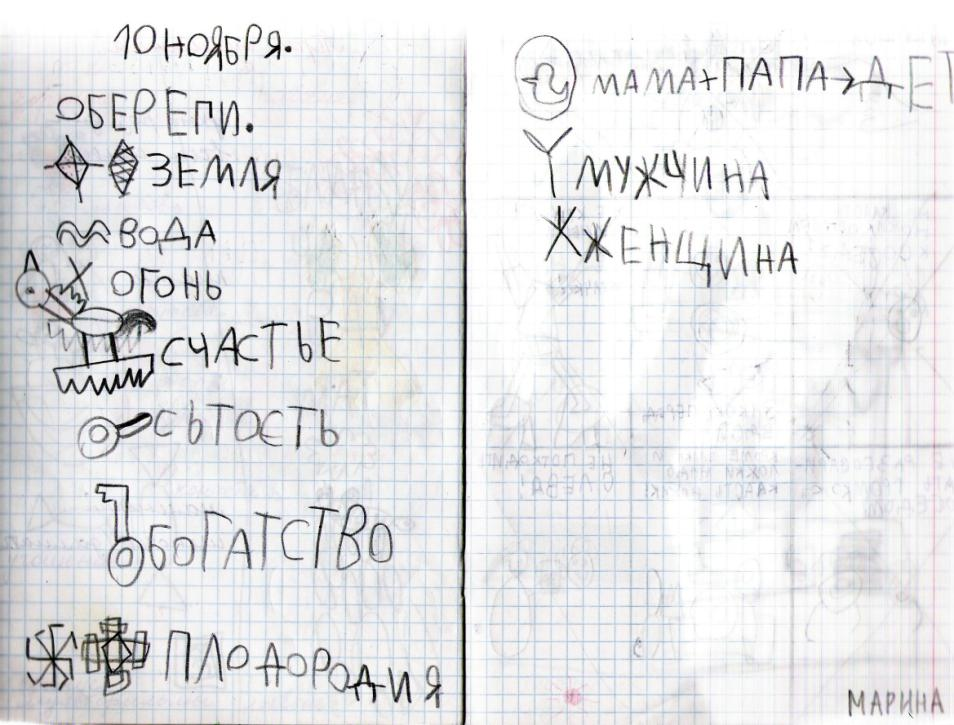 10 НОЯБРЯ.
ОБЕРЕГИ.
ЗЕМЛЯ
ВОДА
ОГОНЬ
СЧАСТЬЕ
СЬТОСТЬ
БОГАТСТВО
ПЛОДОРОДИЯ
МАМА+ПАПА→ДЕТ
МУЖЧИНА
ЖЕНЩИНА
МАРИНА